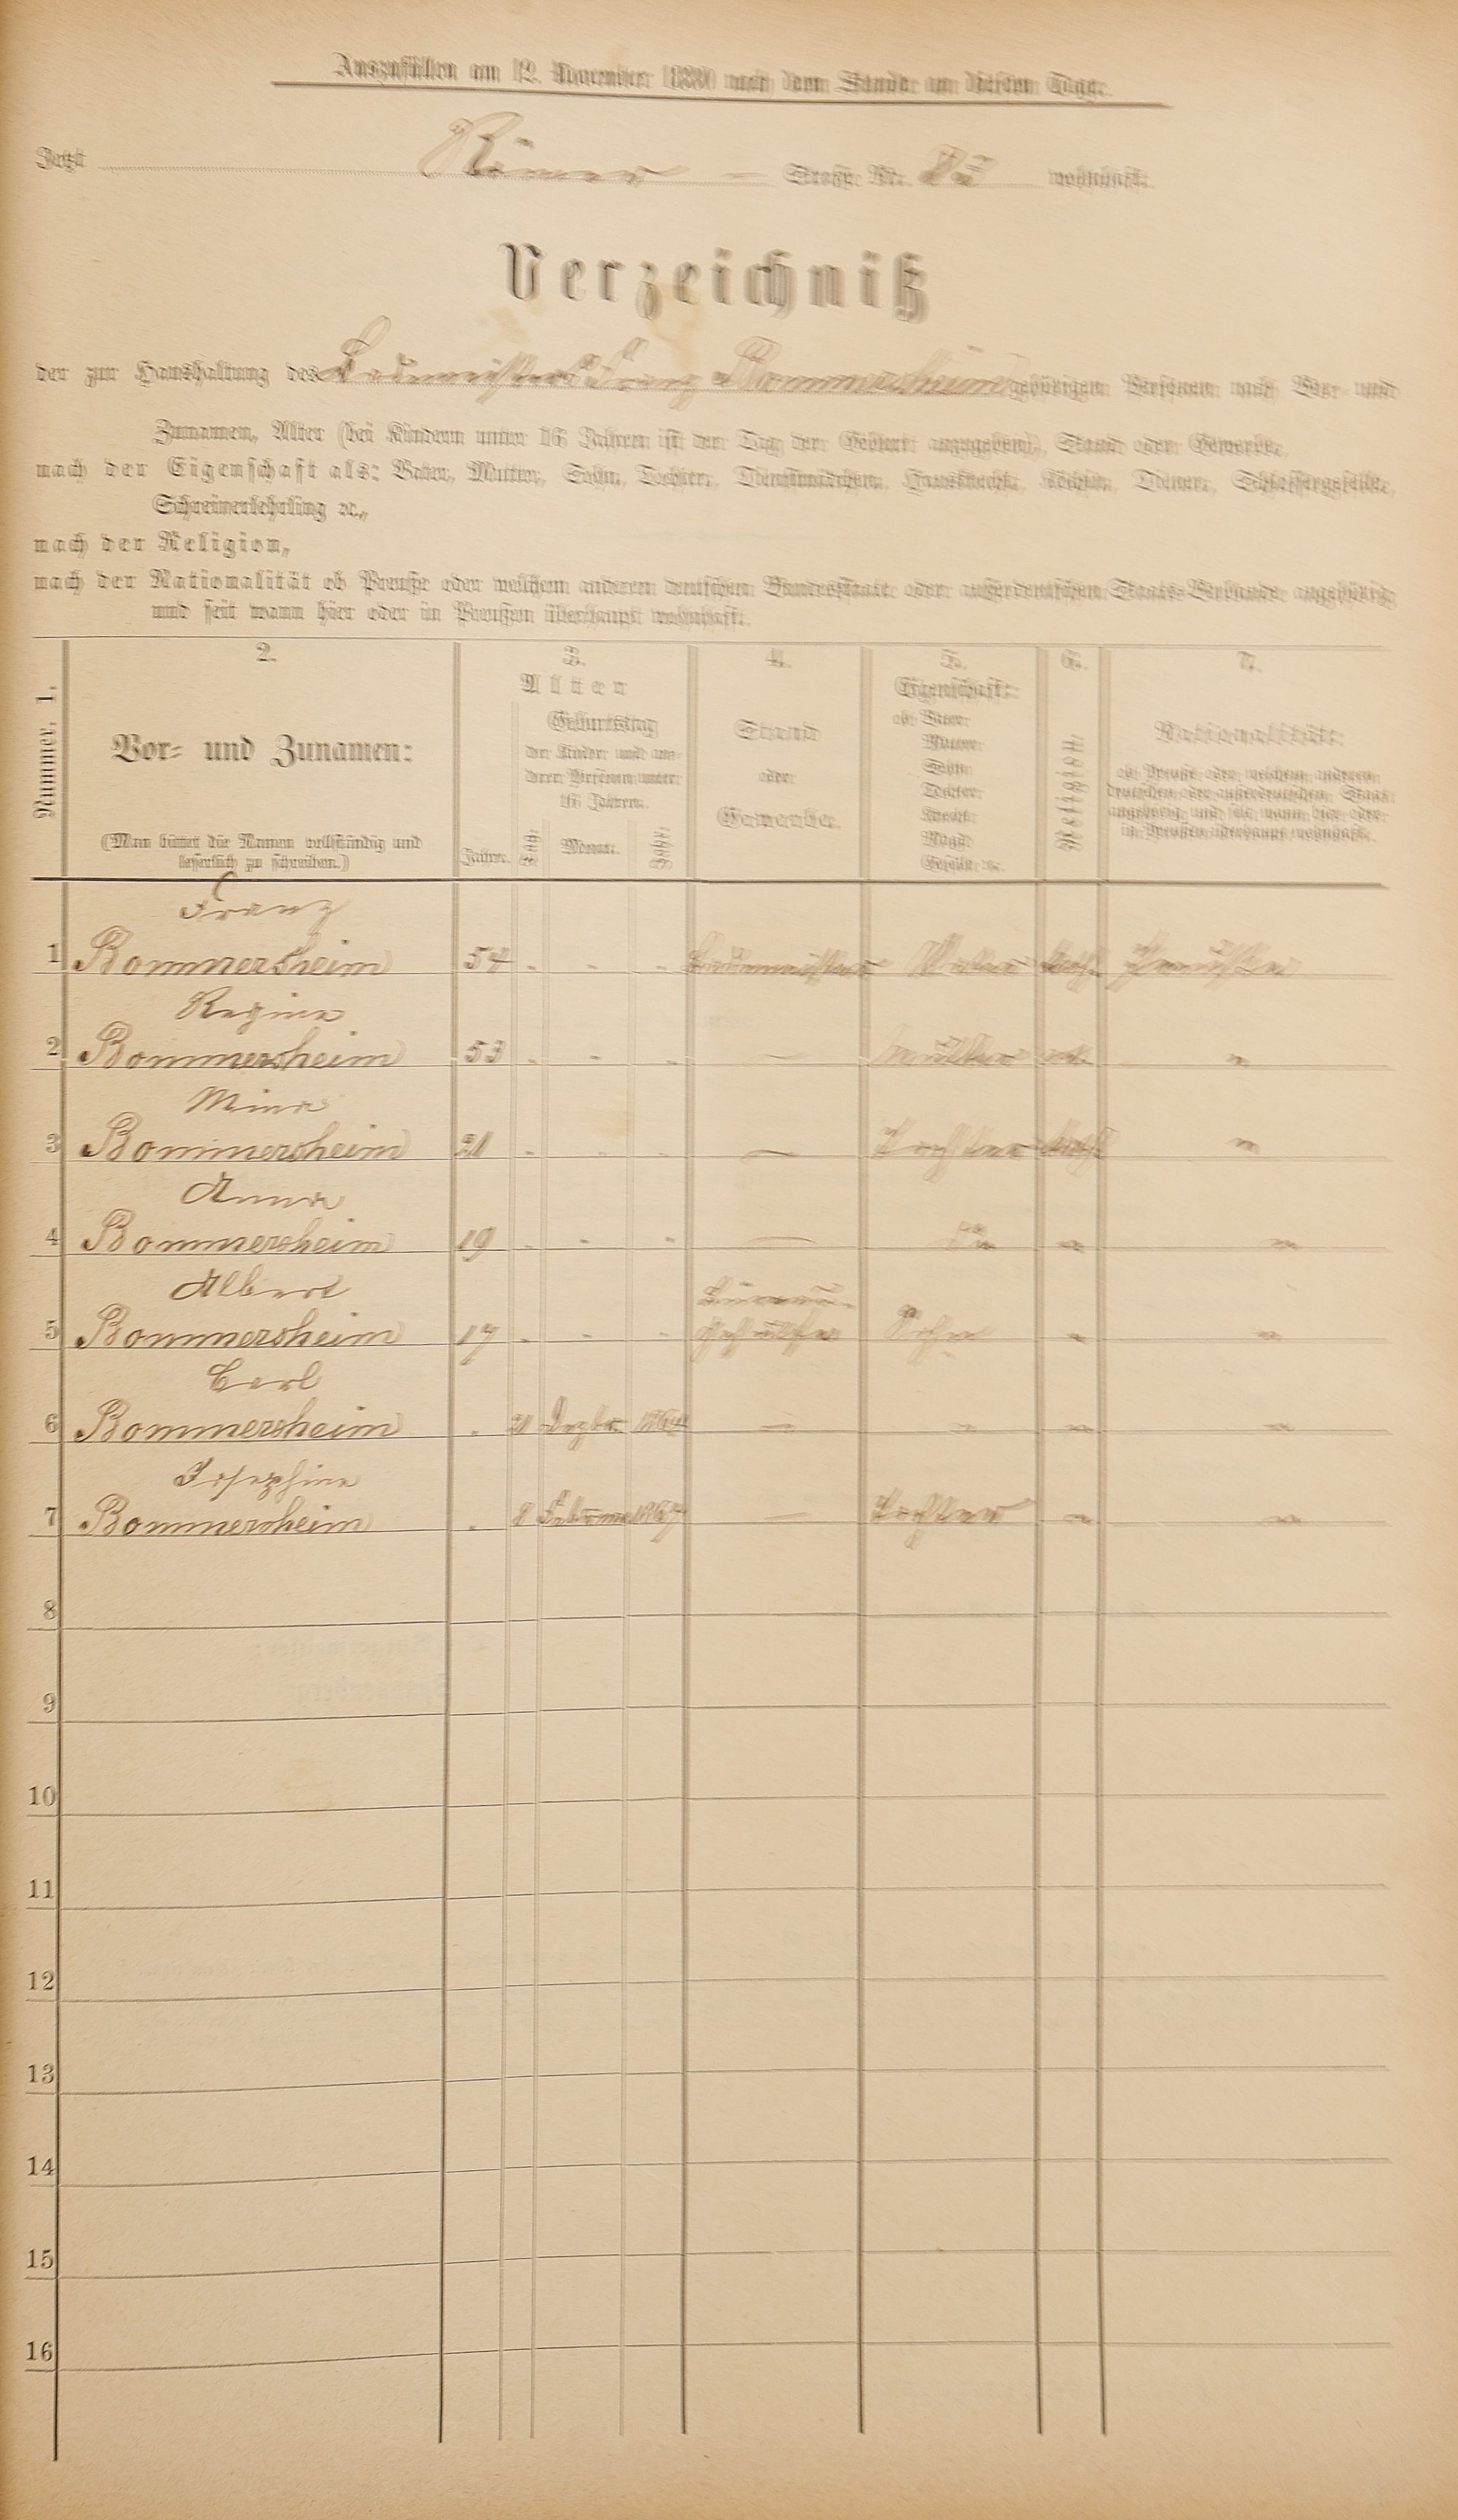 Auszufüllen am 12. November 1880 nach dem Stande an diesem Tage.
Jetzt Römer — Straße Nr. wohnhaft.
Verzeichniß
der zur Haushaltung des Baumeisters Franz Bommersheim gehörigen Personen nach Vor- und
Zunamen, Alter (bei Kindern unter 16 Jahren ist der Tag der Geburt anzugeben), Stand oder Gewerbe,
nach der Eigenschaft als: Vater, Mutter, Sohn, Tochter, Dienstmädchen, Hausknecht, Köchin, Diener, Schlossergeselle,
Schreinerlehrling ꝛc.,
nach der Religion,
nach der Nationalität ob Preuße oder welchem anderen deutschen Bundesstaate oder außerdeutschen Staats-Verbande angehörig
und seit wann hier oder in Preußen überhaupt wohnhaft.
Nummer. 1.
2.
Vor- und Zunamen:
(Man bittet die Namen vollständig und
leserlich zu schreiben.)
3.
Alter
Geburtstag
der Kinder und an-
derer Personen unter
16 Jahren.
Jahre. Tag. Monat. Jahr.
4.
Stand
oder
Gewerbe.
5.
Eigenschaft:
ob Vater
Mutter
Sohn
Tochter
Knecht
Magd
Geselle ꝛc.
6.
Religion
7.
Nationalität:
ob Preuße oder welchem anderen
deutschen oder außerdeutschen Staat
angehörig und seit wann hier oder
in Preußen überhaupt wohnhaft.
Franz
1 Bommersheim 54 - - - Baumeister Vater kath. Preuße
Regina
2 Bommersheim 53 - - - — Mutter "
Mina
3 Bommersheim 21 - - - — Tochter kath "
Anna
4 Bommersheim 19 - - - — " "
Albert Büreau-
5 Bommersheim 17 - - - gehülfe Sohn " "
Carl
6 Bommersheim - 21 Dezbr. 1864 — " " "
Josephine
7 Bommersheim - 8 Februar 1867 — Tochter " "
8
9
10
11
12
13
14
15
16